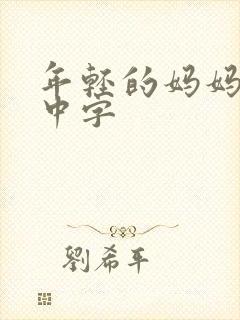 年轻的妈妈
中字
劉希平